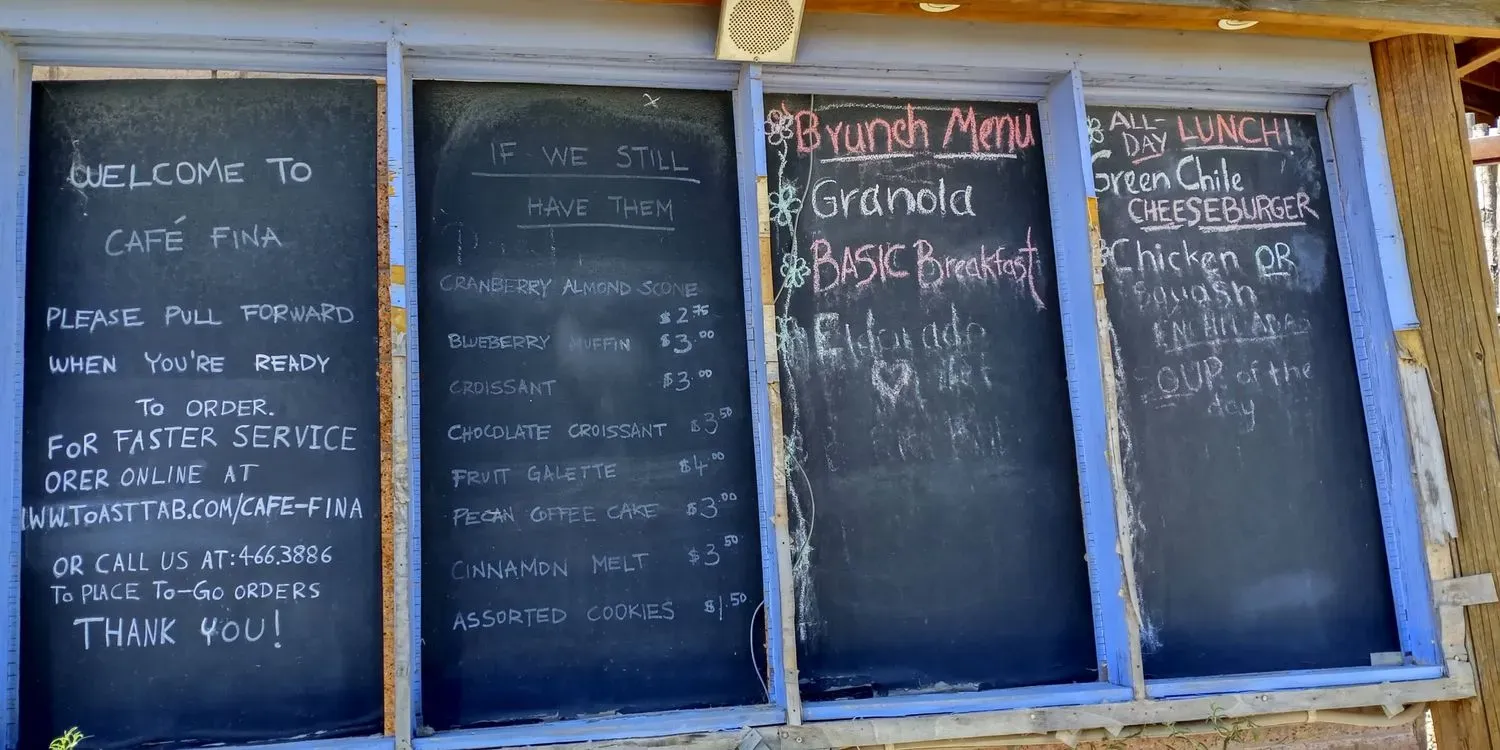 WELCOME TO
CAFÉ FINA
PLEASE PULL FORWARD
WHEN YOU'RE READY
TO ORDER.
FOR FASTER SERVICE
ORER ONLINE AT
WWW.TOASTTAB.COM/CAFE-FINA
OR CALL US AT: 466.3886
TO PLACE TO-GO ORDERS
THANK YOU!
IF WE STILL
HAVE THEM
CRANBERRY ALMOND SCONE
$2.75
BLUEBERRY MUFFIN $3.00
CROISSANT $3.00
CHOCOLATE CROISSANT $3.50
FRUIT GALETTE $4.00
PECAN COFFEE CAKE $3.00
CINNAMON MELT $3.50
ASSORTED COOKIES $1.50
Brunch Menu
Granola
BASIC Breakfast
Eldorado
ALL-
DAY LUNCH!
Green Chile
CHEESEBURGER
Chicken OR
Squash
ENCHILADAS
SOUP of the
day